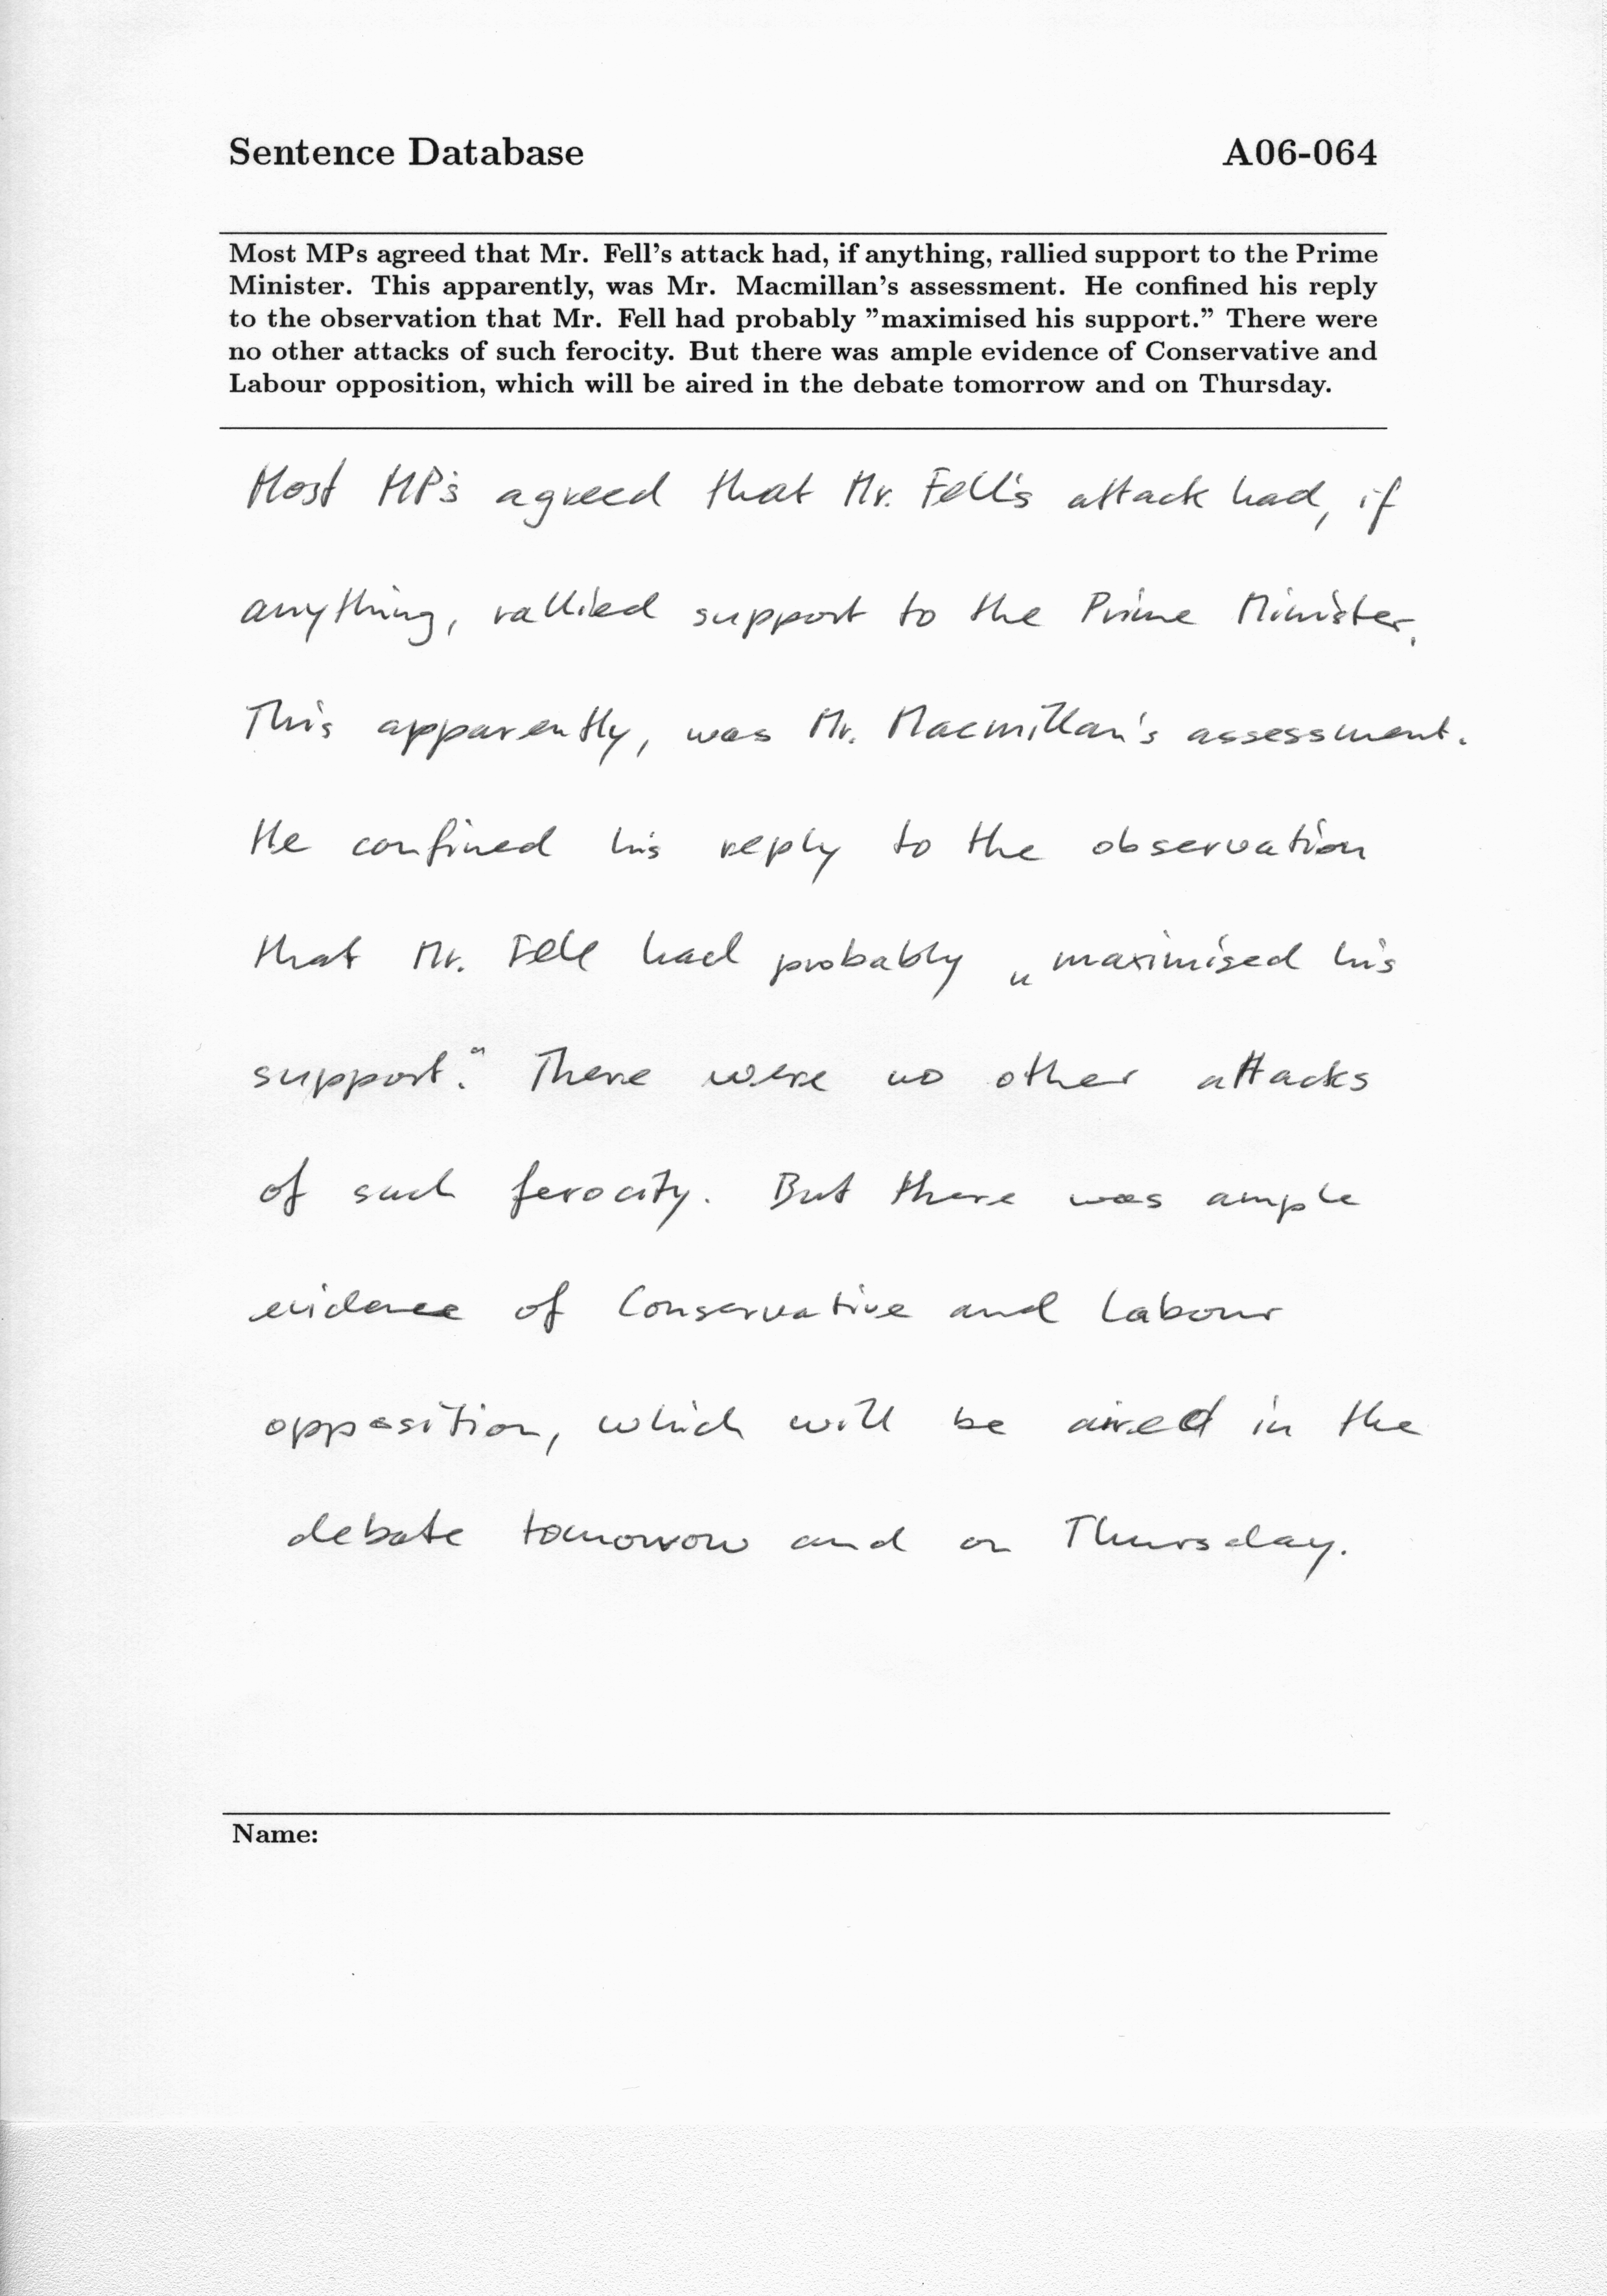 Sentence Database A06-064
Most MPs agreed that Mr. Fell's attack had, if anything, rallied support to the Prime
Minister. This apparently, was Mr. Macmillan's assessment. He confined his reply
to the observation that Mr. Fell had probably ”maximised his support.” There were
no other attacks of such ferocity. But there was ample evidence of Conservative and
Labour opposition, which will be aired in the debate tomorrow and on Thursday.
Most MP's agreed that Mr. Fell's attack had, if
anything, rallied support to the Prime Minister.
This apparently, was Mr. Macmillan's assessment.
He confined his reply to the observation
that Mr. Fell had probably „maximised his
support.“ There were no other attacks
of such ferocity. But there was ample
evidence of Conservative and Labour
opposition, which will be aired in the
debate tomorrow and on Thursday.
Name: